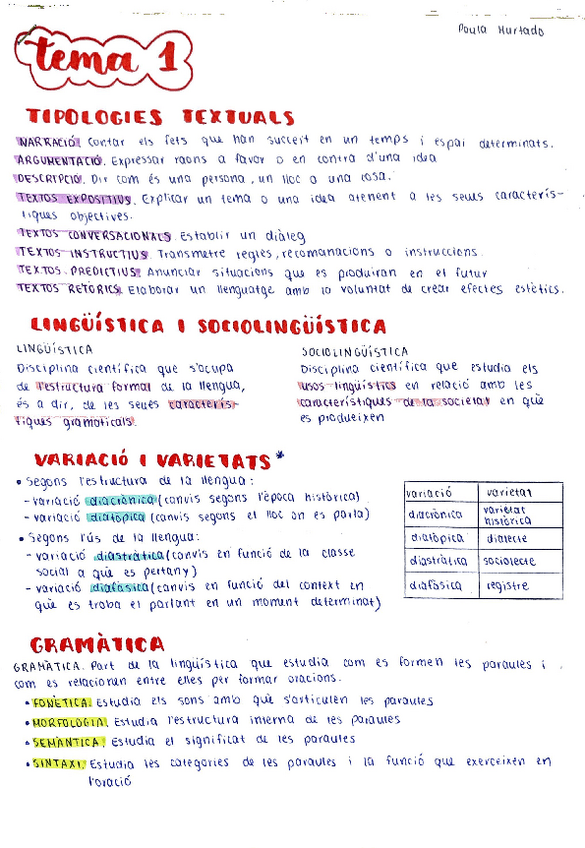 Paula Hurtado
tema 1
TIPOLOGIES TEXTUALS
NARRACIÓ. Contar els fets que han succeit en un temps i espai determinats.
ARGUMENTACIÓ. Expressar raons a favor o en contra d'una idea
DESCRIPCIÓ. Dir com és una persona, un lloc o una cosa.
TEXTOS EXPOSITIUS. Explicar un tema o una idea atenent a les seues caracterís-
tiques objectives.
TEXTOS CONVERSACIONALS. Establir un diàleg
TEXTOS INSTRUCTIUS. Transmetre regles, recomanacions o instruccions.
TEXTOS PREDICTIUS. Anunciar situacions que es produiran en el futur
TEXTOS RETÒRICS. Elaborar un llenguatge amb la voluntat de crear efectes estètics.
LINGÜÍSTICA I SOCIOLINGÜÍSTICA
LINGÜÍSTICA
Disciplina científica que s'ocupa
de l'estructura formal de la llengua,
és a dir, de les seues caracterís-
tiques gramaticals.
SOCIOLINGÜÍSTICA
Disciplina científica que estudia els
usos lingüístics en relació amb les
característiques de la societat en què
es produeixen
VARIACIÓ I VARIETATS *
• Segons l'estructura de la llengua:
- variació diacrònica (canvis segons l'època històrica)
- variació diatòpica (canvis segons el lloc on es parla)
• Segons l'ús de la llengua:
- variació diastràtica (canvis en funció de la classe
social a què es pertany)
- variació diafàsica (canvis en funció del context en
què es troba el parlant en un moment determinat)
variació varietat
diacrònica varietat
històrica
diatòpica dialecte
diastràtica sociolecte
diafàsica registre
GRAMÀTICA
GRAMÀTICA. Part de la lingüística que estudia com es formen les paraules i
com es relacionen entre elles per formar oracions.
• FONÈTICA. Estudia els sons amb què s'articulen les paraules
• MORFOLOGIA. Estudia l'estructura interna de les paraules
• SEMÀNTICA. Estudia el significat de les paraules
• SINTAXI. Estudia les categories de les paraules i la funció que exerceixen en
l'oració